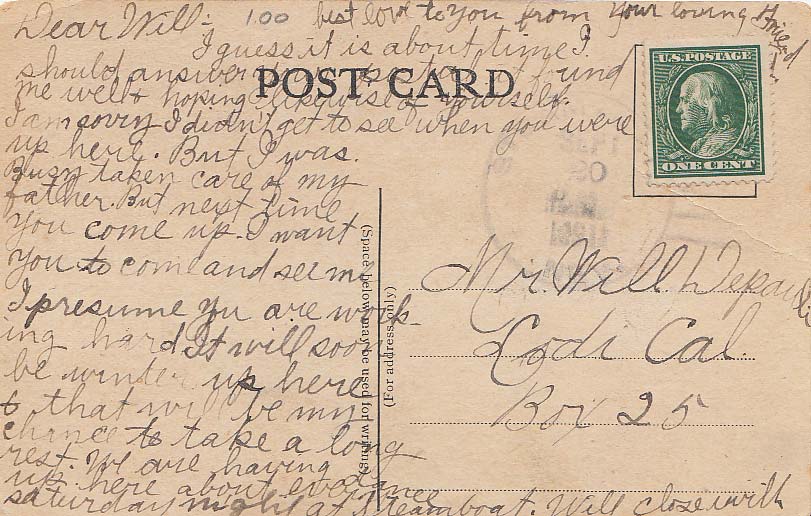 Dear Will:- 100 best love to you from your loving friend
I guess it is about time I
should answer your postal. It found
me well & hoping likewise of yourself.
I am sorry I didn't get to see when you were
up here. But I was.
Busy taken care of my
father. But next time
you come up. I want
you to come and see me
I presume you are work-
ing hard It will soon
be winter up here
& that will be my
chance to take a long
rest. We are having
up here about every
saturday night at Steamboat. Will close with
POST CARD
U.S. POSTAGE
ONE CENT
SEPT
30
1911
(Space below may be used for writing)
(For address only)
Mr. Will
Lodi Cal.
Box 25